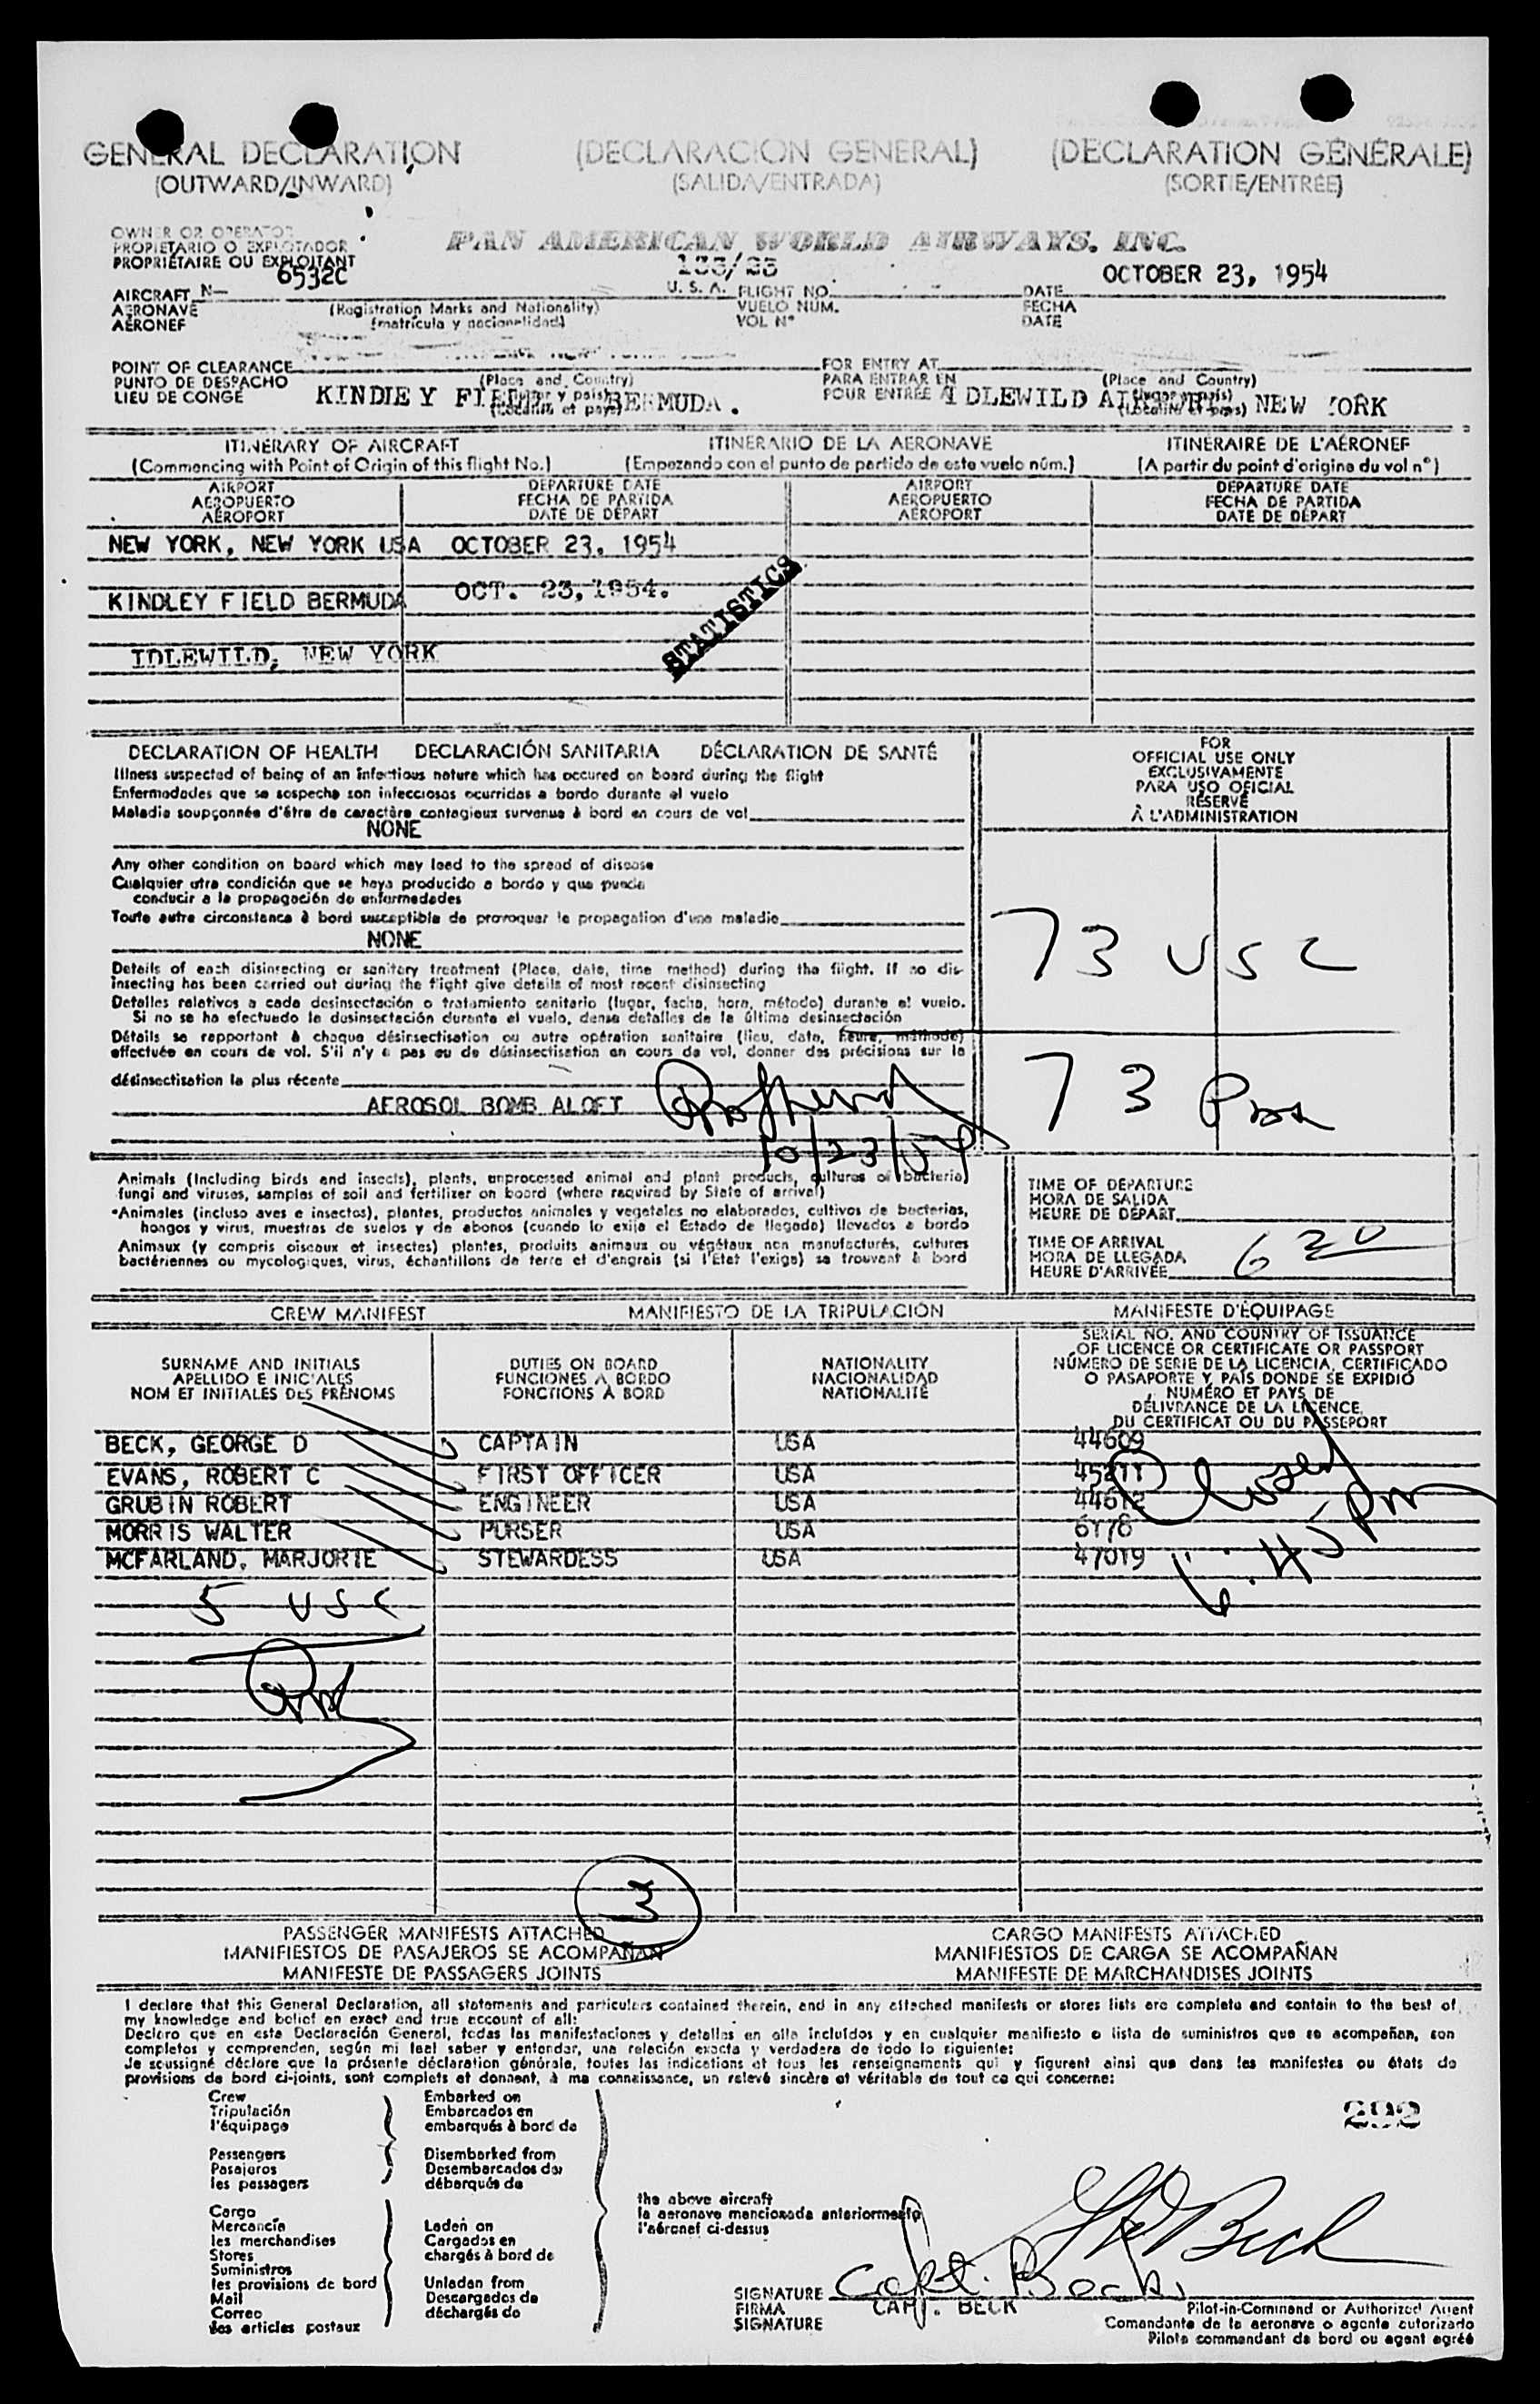 GENERAL DECLARATION (DECLARACION GENERAL) (DECLARATION GÉNÉRALE)
(OUTWARD/INWARD) (SALIDA/ENTRADA) (SORTIE/ENTRÉE)
OWNER OR OPERATOR
PROPIETARIO O EXPLOTADOR
PROPRIÉTAIRE OU EXPLOITANT
PAN AMERICAN WORLD AIRWAYS, INC.
6532C
OCTOBER 23, 1954
AIRCRAFT N— U. S. A. FLIGHT NO. DATE
AERONAVE (Registration Marks and Nationality) VUELO NUM. FECHA
AÉRONEF (matrícula y nacionalidad) VOL N° DATE
POINT OF CLEARANCE FOR ENTRY AT
PUNTO DE DESPACHO (Place and Country) PARA ENTRAR EN (Place and Country)
LIEU DE CONGÉ KINDLEY FIELD BERMUDA. POUR ENTRÉE À IDLEWILD AIRPORT, NEW YORK
ITINERARY OF AIRCRAFT ITINERARIO DE LA AERONAVE ITINÉRAIRE DE L'AÉRONEF
(Commencing with Point of Origin of this flight No.) (Empezando con el punto de partida de este vuelo núm.) (A partir du point d'origine du vol n°)
AIRPORT DEPARTURE DATE AIRPORT DEPARTURE DATE
AEROPUERTO FECHA DE PARTIDA AEROPUERTO FECHA DE PARTIDA
AÉROPORT DATE DE DÉPART AÉROPORT DATE DE DÉPART
NEW YORK, NEW YORK USA OCTOBER 23, 1954
KINDLEY FIELD BERMUDA OCT. 23, 1954.
STATISTICS
IDLEWILD, NEW YORK
DECLARATION OF HEALTH DECLARACIÓN SANITARIA DÉCLARATION DE SANTÉ
Illness suspected of being of an infectious nature which has occured on board during the flight
Enfermedades que se sospecha son infecciosas ocurridas a bordo durante el vuelo
Maladie soupçonnée d'être de caractère contagieux survenue à bord en cours de vol
NONE
Any other condition on board which may lead to the spread of disease
Cualquier otra condición que se haya producido a bordo y que pueda
conducir a la propagación de enfermedades
Toute autre circonstance à bord susceptible de provoquer la propagation d'une maladie
NONE
Details of each disinsecting or sanitary treatment (Place, date, time method) during the flight. If no dis-
insecting has been carried out during the flight give details of most recent disinsecting
Detalles relativos a cada desinsectación o tratamiento sanitario (lugar, fecha, hora, método) durante el vuelo.
Si no se ha efectuado la desinsectación durante el vuelo, dense detalles de la última desinsectación
Détails se rapportant à chaque désinsectisation ou autre opération sanitaire (lieu, date, heure, méthode)
effectuée en cours de vol. S'il n'y a pas eu de désinsectisation en cours de vol, donner des précisions sur la
désinsectisation la plus récente
AEROSOL BOMB ALOFT
10/23/54
FOR
OFFICIAL USE ONLY
EXCLUSIVAMENTE
PARA USO OFICIAL
RÉSERVÉ
À L'ADMINISTRATION
73 USC
73 Pax
Animals (Including birds and insects), plants, unprocessed animal and plant products, cultures of bacteria)
fungi and viruses, samples of soil and fertilizer on board (where required by State of arrival)
Animales (incluso aves e insectos), plantes, productos animales y vegetales no elaborados, cultivos de bacterias,
hongos y virus, muestras de suelos y de abonos (cuando lo exija el Estado de llegada) llevados a bordo
Animaux (y compris oiseaux et insectes) plantes, produits animaux ou végétaux non manufacturés, cultures
bactériennes ou mycologiques, virus, échantillons de terre et d'engrais (si l'Etat l'exige) se trouvant à bord
TIME OF DEPARTURE
HORA DE SALIDA
HEURE DE DÉPART
TIME OF ARRIVAL
HORA DE LLEGADA
HEURE D'ARRIVÉE
CREW MANIFEST MANIFIESTO DE LA TRIPULACIÓN MANIFESTE D'ÉQUIPAGE
SURNAME AND INITIALS
APELLIDO E INICIALES
NOM ET INITIALES DES PRÉNOMS
DUTIES ON BOARD
FUNCIONES A BORDO
FONCTIONS À BORD
NATIONALITY
NACIONALIDAD
NATIONALITÉ
SERIAL NO. AND COUNTRY OF ISSUANCE
OF LICENCE OR CERTIFICATE OR PASSPORT
NÚMERO DE SERIE DE LA LICENCIA, CERTIFICADO
O PASAPORTE Y PAÍS DONDE SE EXPIDIÓ
NUMÉRO ET PAYS DE
DÉLIVRANCE DE LA LICENCE,
DU CERTIFICAT OU DU PASSEPORT
BECK, GEORGE D CAPTAIN USA 44609
EVANS, ROBERT C FIRST OFFICER USA 45211
GRUBIN ROBERT ENGINEER USA 44612
MORRIS WALTER PURSER USA 6178
MCFARLAND, MARJORIE STEWARDESS USA 47019
6:45 pm
5 USC
3
PASSENGER MANIFESTS ATTACHED CARGO MANIFESTS ATTACHED
MANIFIESTOS DE PASAJEROS SE ACOMPAÑAN MANIFIESTOS DE CARGA SE ACOMPAÑAN
MANIFESTE DE PASSAGERS JOINTS MANIFESTE DE MARCHANDISES JOINTS
I declare that this General Declaration, all statements and particulars contained therein, and in any attached manifests or stores lists are complete and contain to the best of
my knowledge and belief an exact and true account of all:
Declaro que en esta Declaración General, todas las manifestaciones y detalles en ella incluídos y en cualquier manifiesto o lista de suministros que se acompañan, son
completos y comprenden, según mi leal saber y entender, una relación exacta y verdadera de todo lo siguiente:
Je soussigné déclare que la présente déclaration générale, toutes les indications et tous les renseignements qui y figurent ainsi que dans les manifestes ou états de
provisions de bord ci-joints, sont complets et donnent, à ma connaissance, un relevé sincère et véritable de tout ce qui concerne:
Crew
Tripulación
l'équipage
Passengers
Pasajeros
les passagers
Cargo
Mercancía
les merchandises
Stores
Suministros
les provisions de bord
Mail
Correo
les articles postaux
Embarked on
Embarcados en
embarqués à bord de
Disembarked from
Desembarcados de
débarqués de
Laden on
Cargados en
chargés à bord de
Unladen from
Descargados de
déchargés de
the above aircraft
la aeronave mencionada anteriormente
l'aéronef ci-dessus
292
G D Beck
SIGNATURE Capt. Beck
FIRMA CAPT. BECK
SIGNATURE
Pilot-in-Command or Authorized Agent
Comandante de la aeronave o agente autorizado
Pilote commandant de bord ou agent agréé